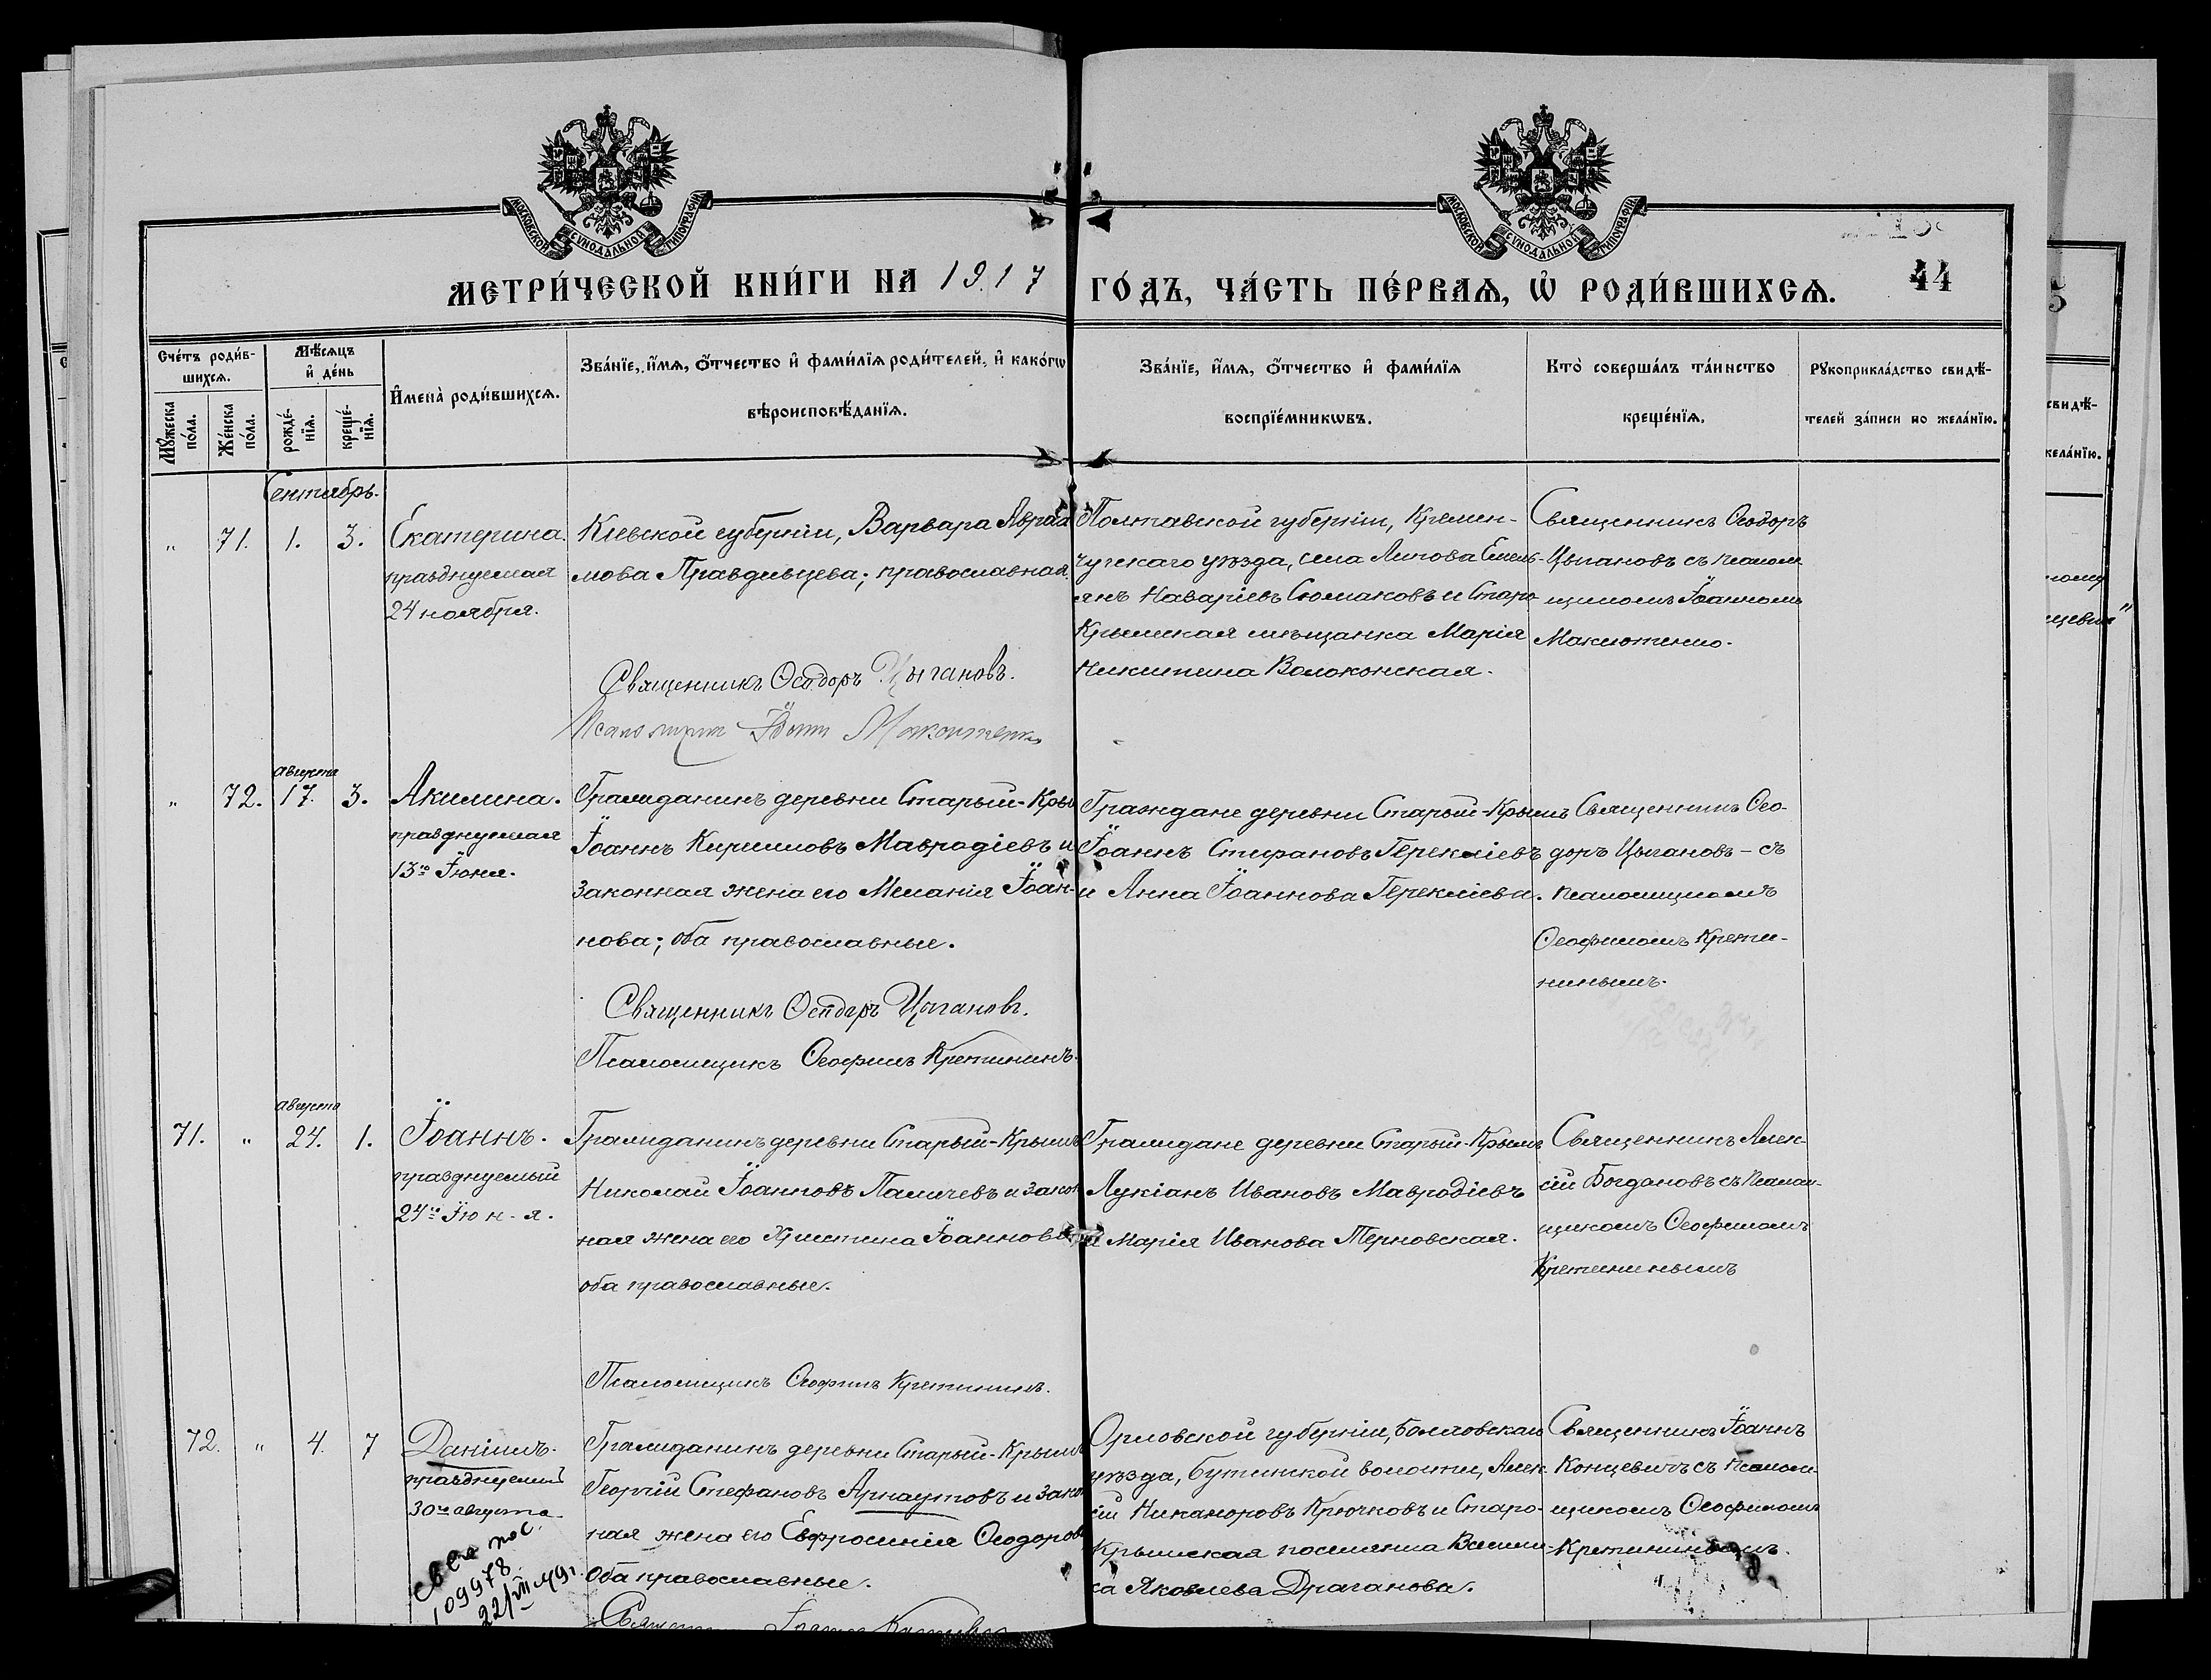 МЕТРИ́ЧЕСКОЙ КНИ́ГИ НА 1917 ГО́ДЪ, ЧА́СТЬ ПЕ́РВАѦ, Ѡ РОДИ́ВШИХСѦ.
44
МОСКОВСКОЙ СѴНОДАЛЬНОЙ ТИПОГРАФІИ
МОСКОВСКОЙ СѴНОДАЛЬНОЙ ТИПОГРАФІИ
Сче́тъ роди́в-
шихсѧ.
Мꙋ́жеска по́ла.
Же́нска по́ла.
Мѣ́сѧцъ
и҆ де́нь
рожде́-
нїѧ.
креще́-
нїѧ.
И҆мена̀ роди́вшихсѧ.
Зва́нїе, и҆́мѧ, ѻ҆́тчество и҆ фами́лїѧ роди́телей, и҆ како́гѡ
вѣроисповѣ́данїѧ.
Зва́нїе, и҆́мѧ, ѻ҆́тчество и҆ фами́лїѧ
воспрїе́мникѡвъ.
Кто̀ соверша́лъ та́инство
креще́нїѧ.
Рꙋкоприкла́дство свидѣ́-
телей за́писи по жела́нїю.
Сентябрь.
" 71. 1. 3.
Екатерина.
празднуемая
24 ноября.
Кіевской губерніи, Варвара Авраа
мова Правдивцева; православная.
Священникъ Ѳеодоръ Цыгановъ.
Полтавской губерніи, Кремен-
чугскаго уѣзда, села Липова Емель-
янъ Назаріевъ Сюмаковъ и Старо
Крымская мѣщанка Марія
Никитина Волоконская.
Священникъ Ѳеодоръ
Цыгановъ съ псалом
щикомъ Іоанномъ
Макотенко.
августа
" 72. 17. 3.
Акилина.
празднуемая
13го Іюня.
Гражданинъ деревни Старый-Кры
Іоаннъ Кирилловъ Мавродіевъ и
законная жена его Меланія Іоан-
нова; оба православные.
Священникъ Ѳеодоръ Цыгановъ.
Псаломщикъ Ѳеофилъ Кретининъ.
Граждане деревни Старый-Крымъ
Іоаннъ Стефановъ Гереклiевъ
и Анна Іоаннова Гереклiева.
Священникъ Ѳео-
доръ Цыгановъ - съ
псаломщикомъ
Ѳеофиломъ Крети-
нинымъ.
августа
71. " 24. 1.
Іоаннъ.
празднуемый
24го Іюн-я.
Гражданинъ деревни Старый-Крымъ
Николай Іоанновъ Паличевъ и закон
ная жена его Христина Іоаннова
оба православные.
Псаломщикъ Ѳеофилъ Кретининъ.
Граждане деревни Старый-Крымъ
Лукіанъ Ивановъ Мавродіевъ
и Марія Иванова Терновская.
Священникъ Алек-
сій Богдановъ съ псалом-
щикомъ Ѳеофиломъ
Кретининымъ
72. " 4. 7
Даніилъ.
празднуемый
30го августа.
109978
22/VII-49г.
Гражданинъ деревни Старый-Крымъ
Георгій Стефановъ Арнаутовъ и закон
ная жена его Евфросинія Ѳеодоров
Оба православные.
Орловской губерніи, Болховскаго
уѣзда, Бутинской волости, Алек
сій Никаноровъ Крючковъ и Старо-
Крымская поселянка Васили-
са Яковлева Драганова.
Священникъ Іоаннъ
Концевичъ съ псалом-
щикомъ Ѳеофиломъ
Кретининымъ.